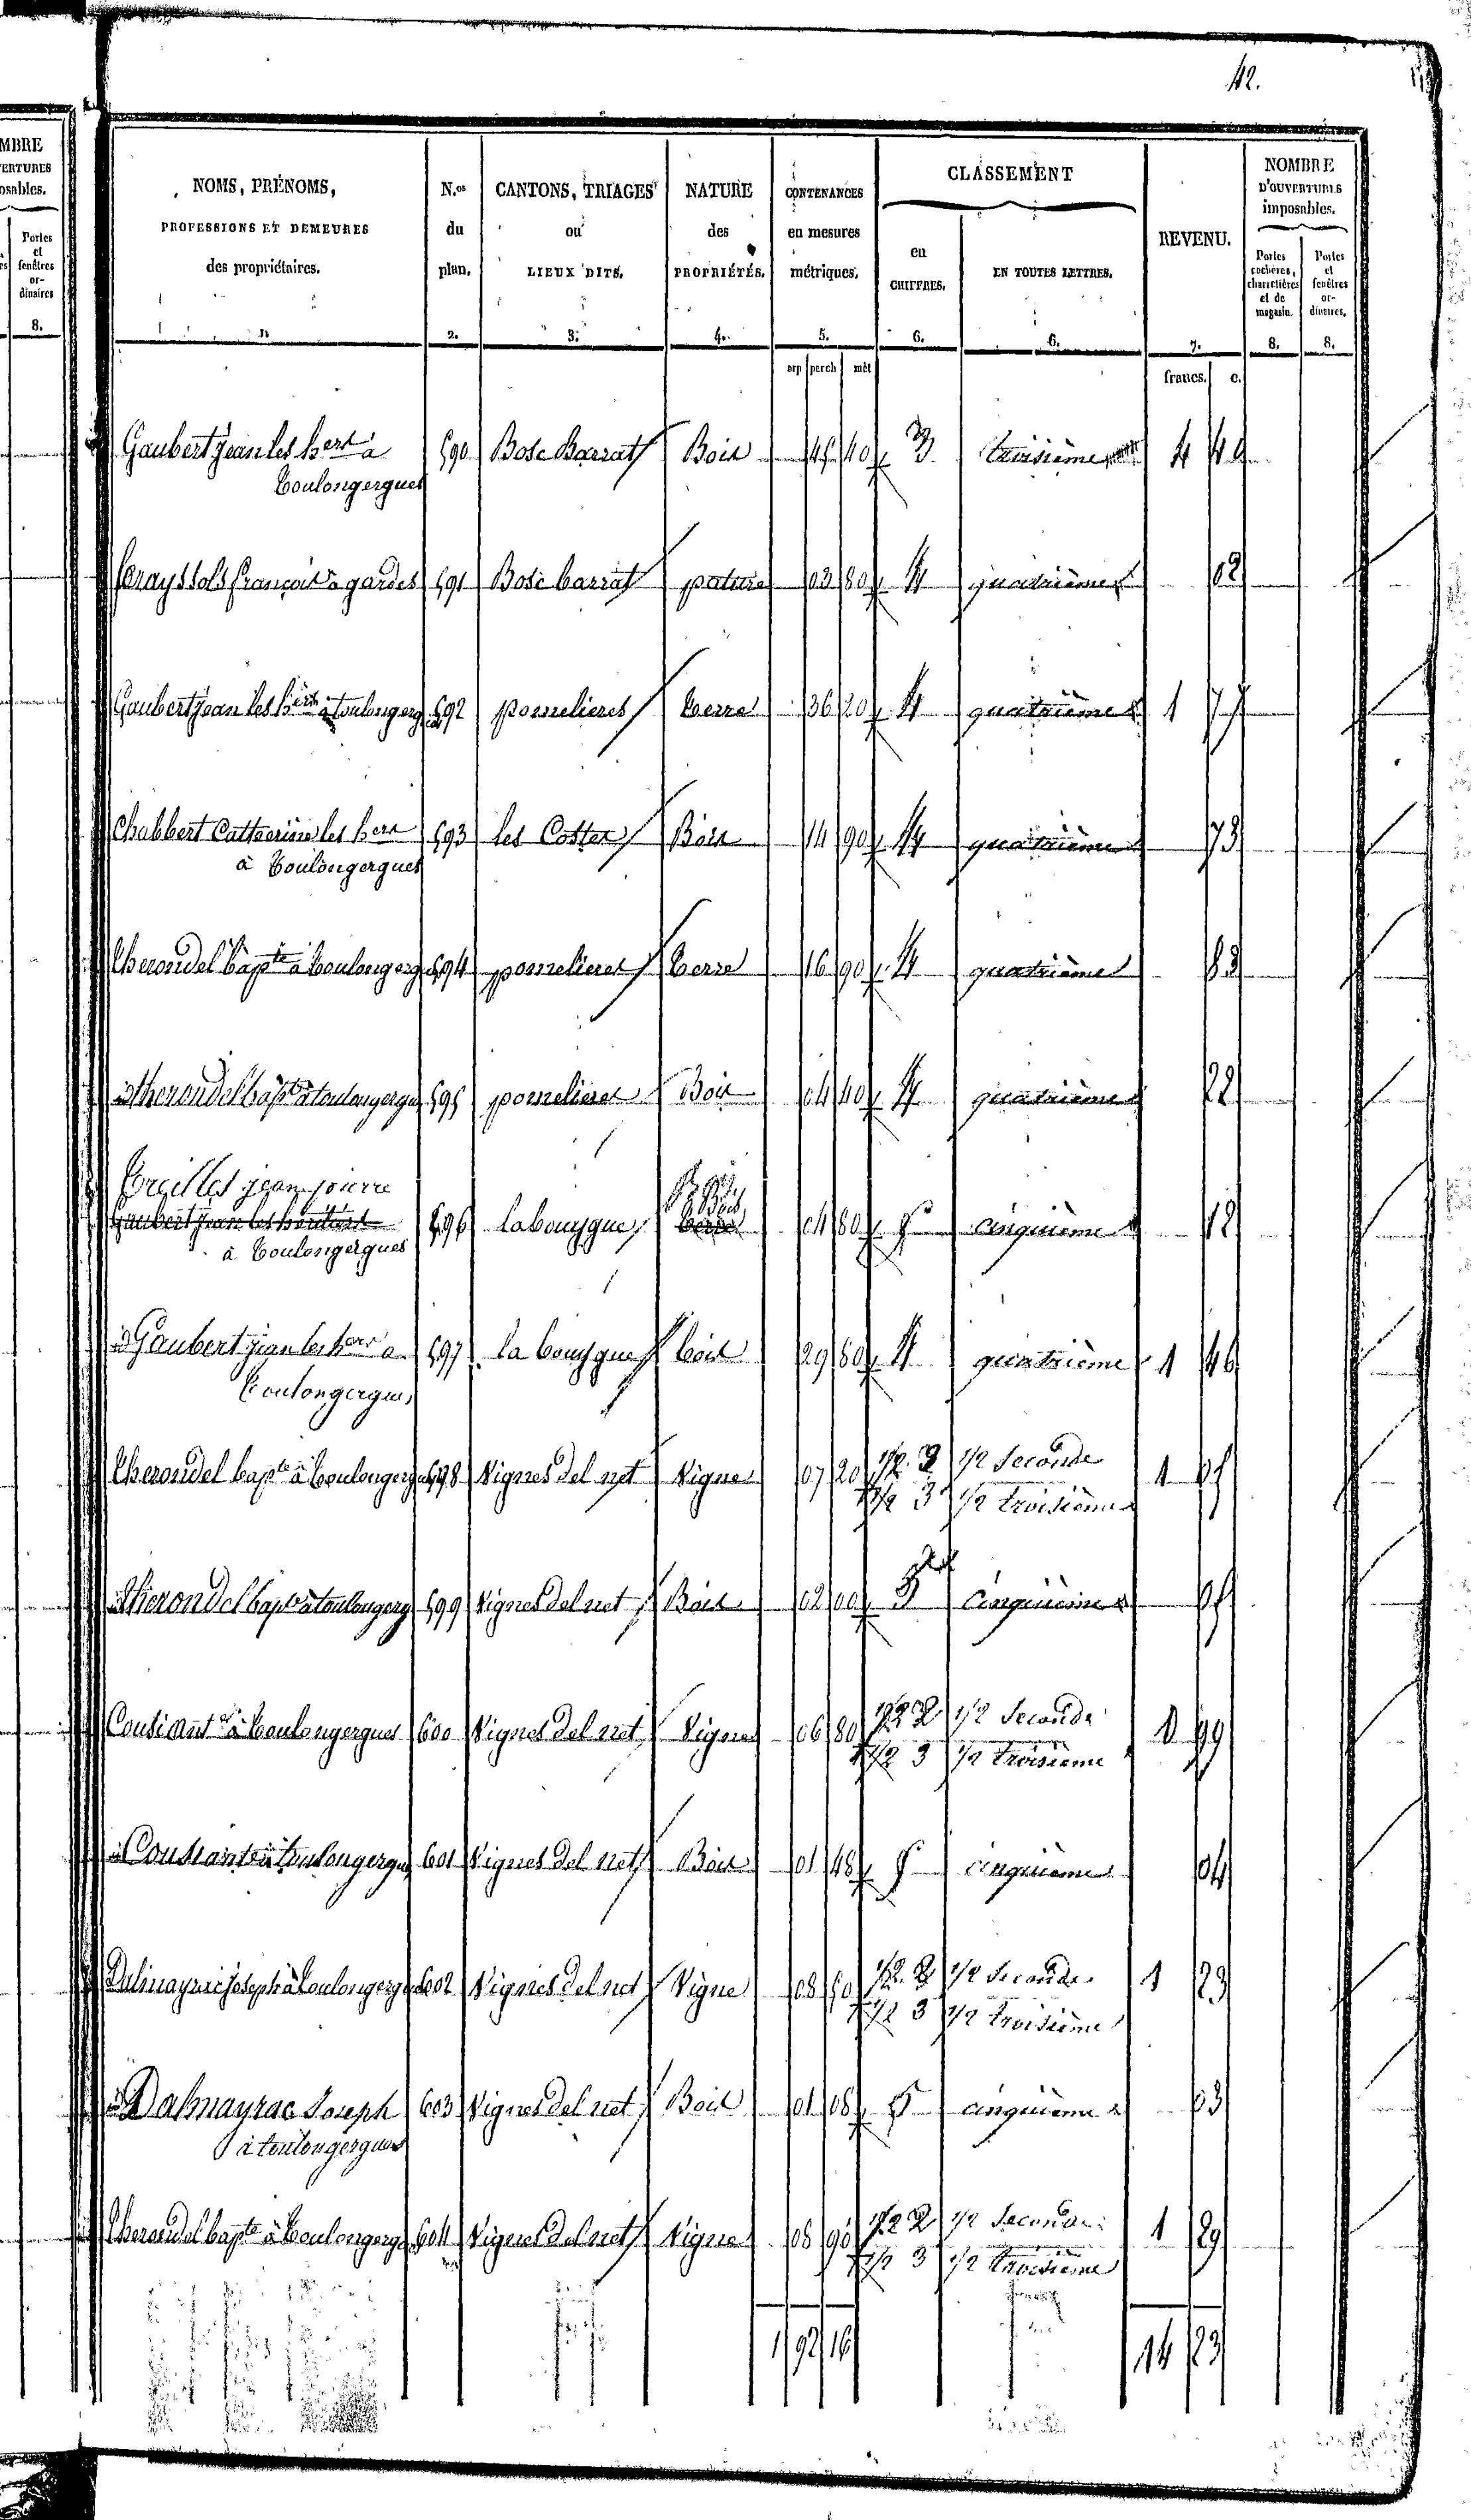 42.
MBRE
ERTURES
osables.
Portes
et
fenêtres
or-
dinaires
8.
NOMS, PRÉNOMS,
PROFESSIONS ET DEMEURES
des propriétaires.
1.
N.os
du
plan.
2.
CANTONS, TRIAGES
ou
LIEUX DITS.
3.
NATURE
des
PROPRIÉTÉS.
4.
CONTENANCES
en mesures
métriques.
5.
CLASSEMENT
en
CHIFFRES.
6.
EN TOUTES LETTRES.
6.
REVENU.
7.
NOMBRE
D'OUVERTURES
imposables.
Portes
cochères,
charretières
et de
magasin.
8.
Portes
et
fenêtres
or-
dinaires.
8.
arp perch mèt
francs. c.
Gaubert jean les hers à 590 Bosc Barrat Bois 40 3 troisième 4
Toulongergues
françois à gardes 591 Bosc barrat pature 03 80 4 quatrième 12
Gaubert jean les hers à toulongerg 592 posselieres terre 36 20 4 quatrième 1 77
Chabbert Catherine les hers 593 les Costes Bois 14 90 4 quatrième 73
à Toulongergues
Therondel bapte à toulongerg 594 posselieres terre 16 90 4 quatrième 83
Therondel bapte à toulongergu 595 posselieres Bois 04 40 4 quatrième 22
jean pierre
Gaubert jean les heritiers 596 labouygue Bois 04 80 5 cinquième 12
à Toulongergues
Gaubert jean les hers à 597 la bouygue bois 29 80 4 quatrième 1 46
Toulongergues
Therondel bapte à toulongerg 598 Vignes del net Vigne 07 20 1/2 2 1/2 Seconde 1 05
1/2 3 1/2 troisième
Therondel bapte à toulongerg 599 Vignes del net Bois 02 00 5 cinquième 05
Coustant à toulongergues 600 Vignes del net Vigne 06 80 1/2 2 1/2 Seconde 99
1/2 3 1/2 troisième
Coustant à toulongergu 601 Vignes del net Bois 01 48 5 cinquième 04
Dalmayrac joseph à toulongerg 602 Vignes del net Vigne 08 50 1/2 2 1/2 Seconde 1 23
1/2 3 1/2 troisième
Dalmayrac Joseph 603 Vignes del net Bois 01 08 5 cinquième 03
à toulongergues
Therondel bapte à toulongerg 604 Vignes del net Vigne 08 90 1/2 2 1/2 Seconde 1 29
1/2 3 1/2 troisième
1 92 16 14 23